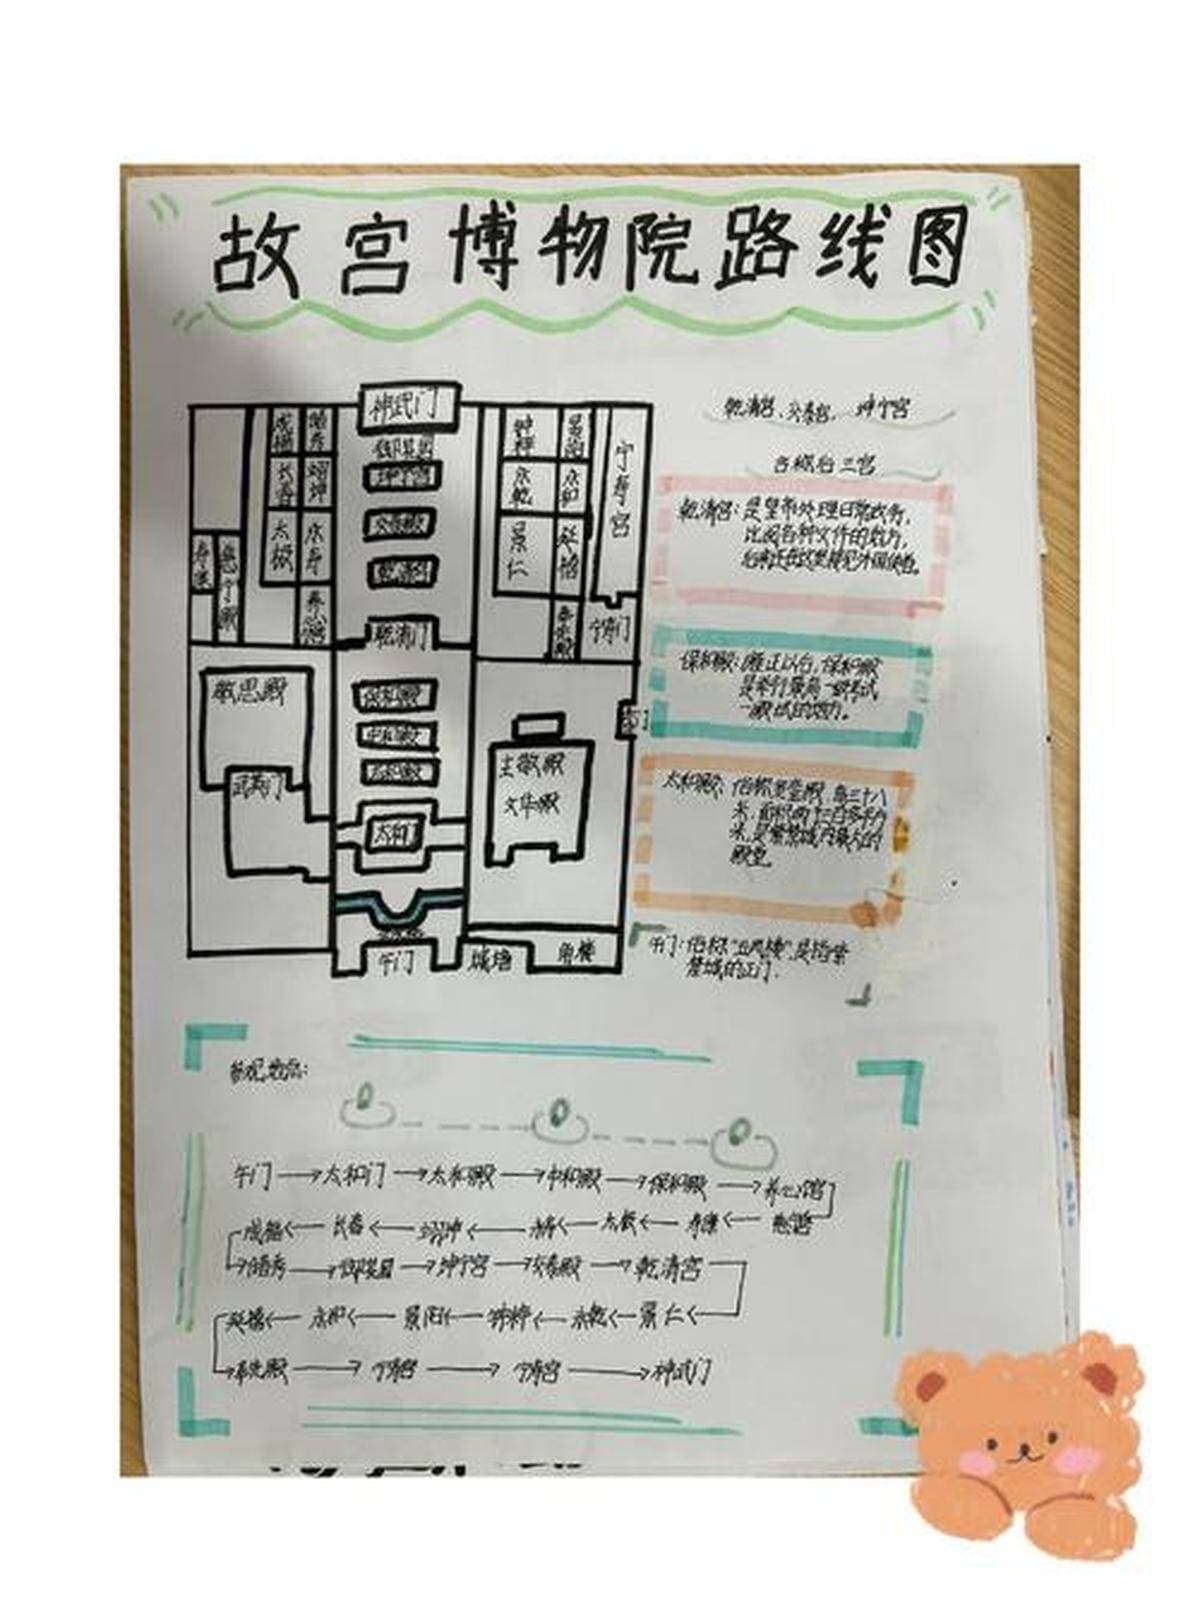 故宫博物院路线图
神武门
御花园
坤宁宫
交泰殿
乾清门
保和殿
中和殿
太和殿
太和门
午门
城墙
角楼
储秀
长春
太极
永寿
钟粹
景阳
永乾
永和
景仁
延禧
宁寿宫
敬思殿
武英门
主敬殿
文华殿
乾清宫、交泰宫、坤宁宫
合称后三宫
乾清宫：是皇帝处理日常政务，
比阅各种文件的地方，
后来还在这里接见外国使臣。
保和殿：雍正以后，保和殿
是举行最高一级考试
—殿试的地方。
太和殿：俗称金銮殿，高三十八
米，面积两千三百多平方
米，是紫禁城内最大的
殿堂。
午门：俗称“五凤楼”，是紫
禁城的正门.
参观路线：
午门→太和门→太和殿→中和殿→保和殿→养心殿
咸福←长春←翊坤←永寿←太极←寿康←慈宁
→储秀→御花园→坤宁宫→交泰殿→乾清宫
延禧←永和←景阳←钟粹←永乾←景仁←
→奉先殿→宁寿宫→神武门